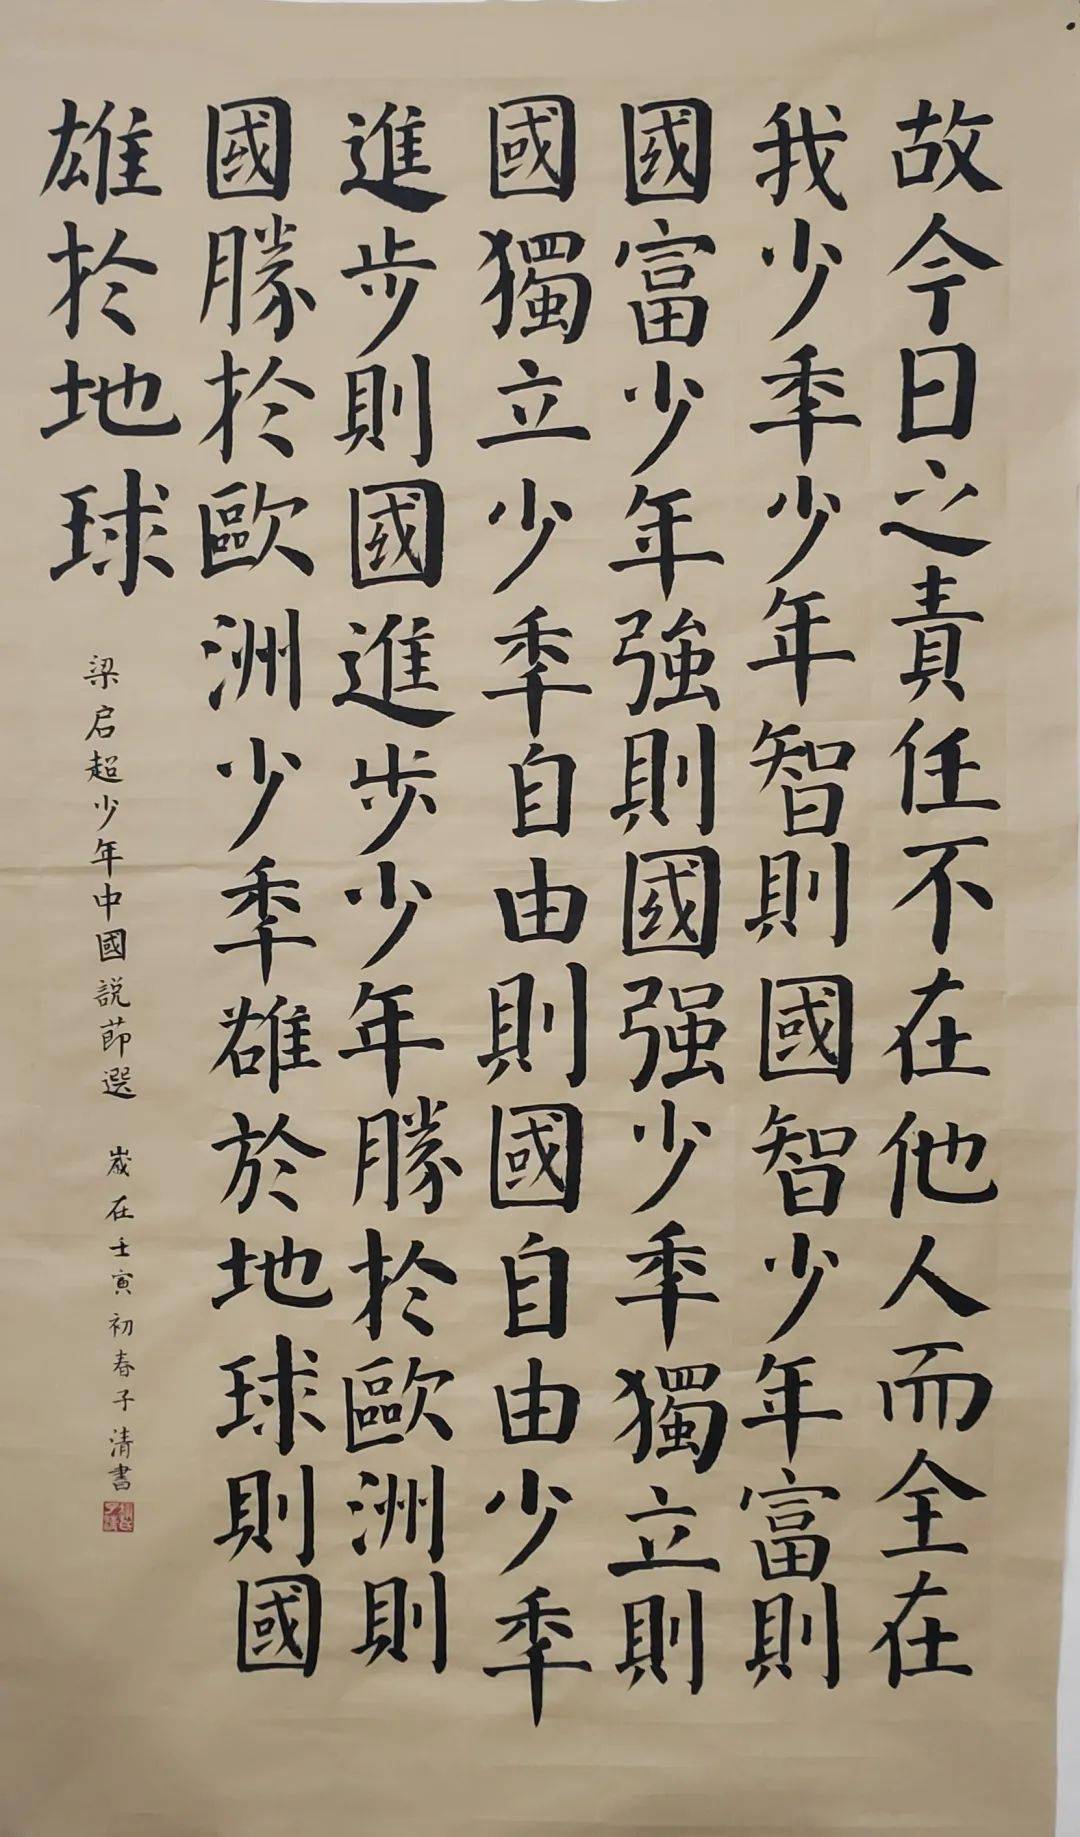 故今日之責任不在他人而全在
我少秊少年智則國智少年富則
國富少年強則國强少秊獨立則
國獨立少秊自由則國自由少秊
進步則國進步少年勝於歐洲則
國勝於歐洲少秊雄於地球則國
雄於地球
梁启超少年中國説節選 歲在壬寅初春子清書